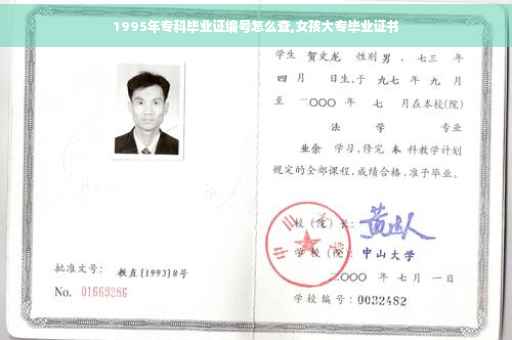 1995年专科毕业证编号怎么查,女孩大专毕业证书
学生 贺文龙 性别 男 、七三 年
四 月 日生,于 九七 年 九 月
至 二〇〇〇 年 七 月在本校(院)
法 学 专业
业余 学习,修完 本 科教学计划
规定的全部课程,成绩合格,准予毕业。
校(院)长:
学校(院): 中山大学
二〇〇〇 年 七 月 一 日
学校编号: 0032482
批准文号: 教直[1993]8号
No. 01663286